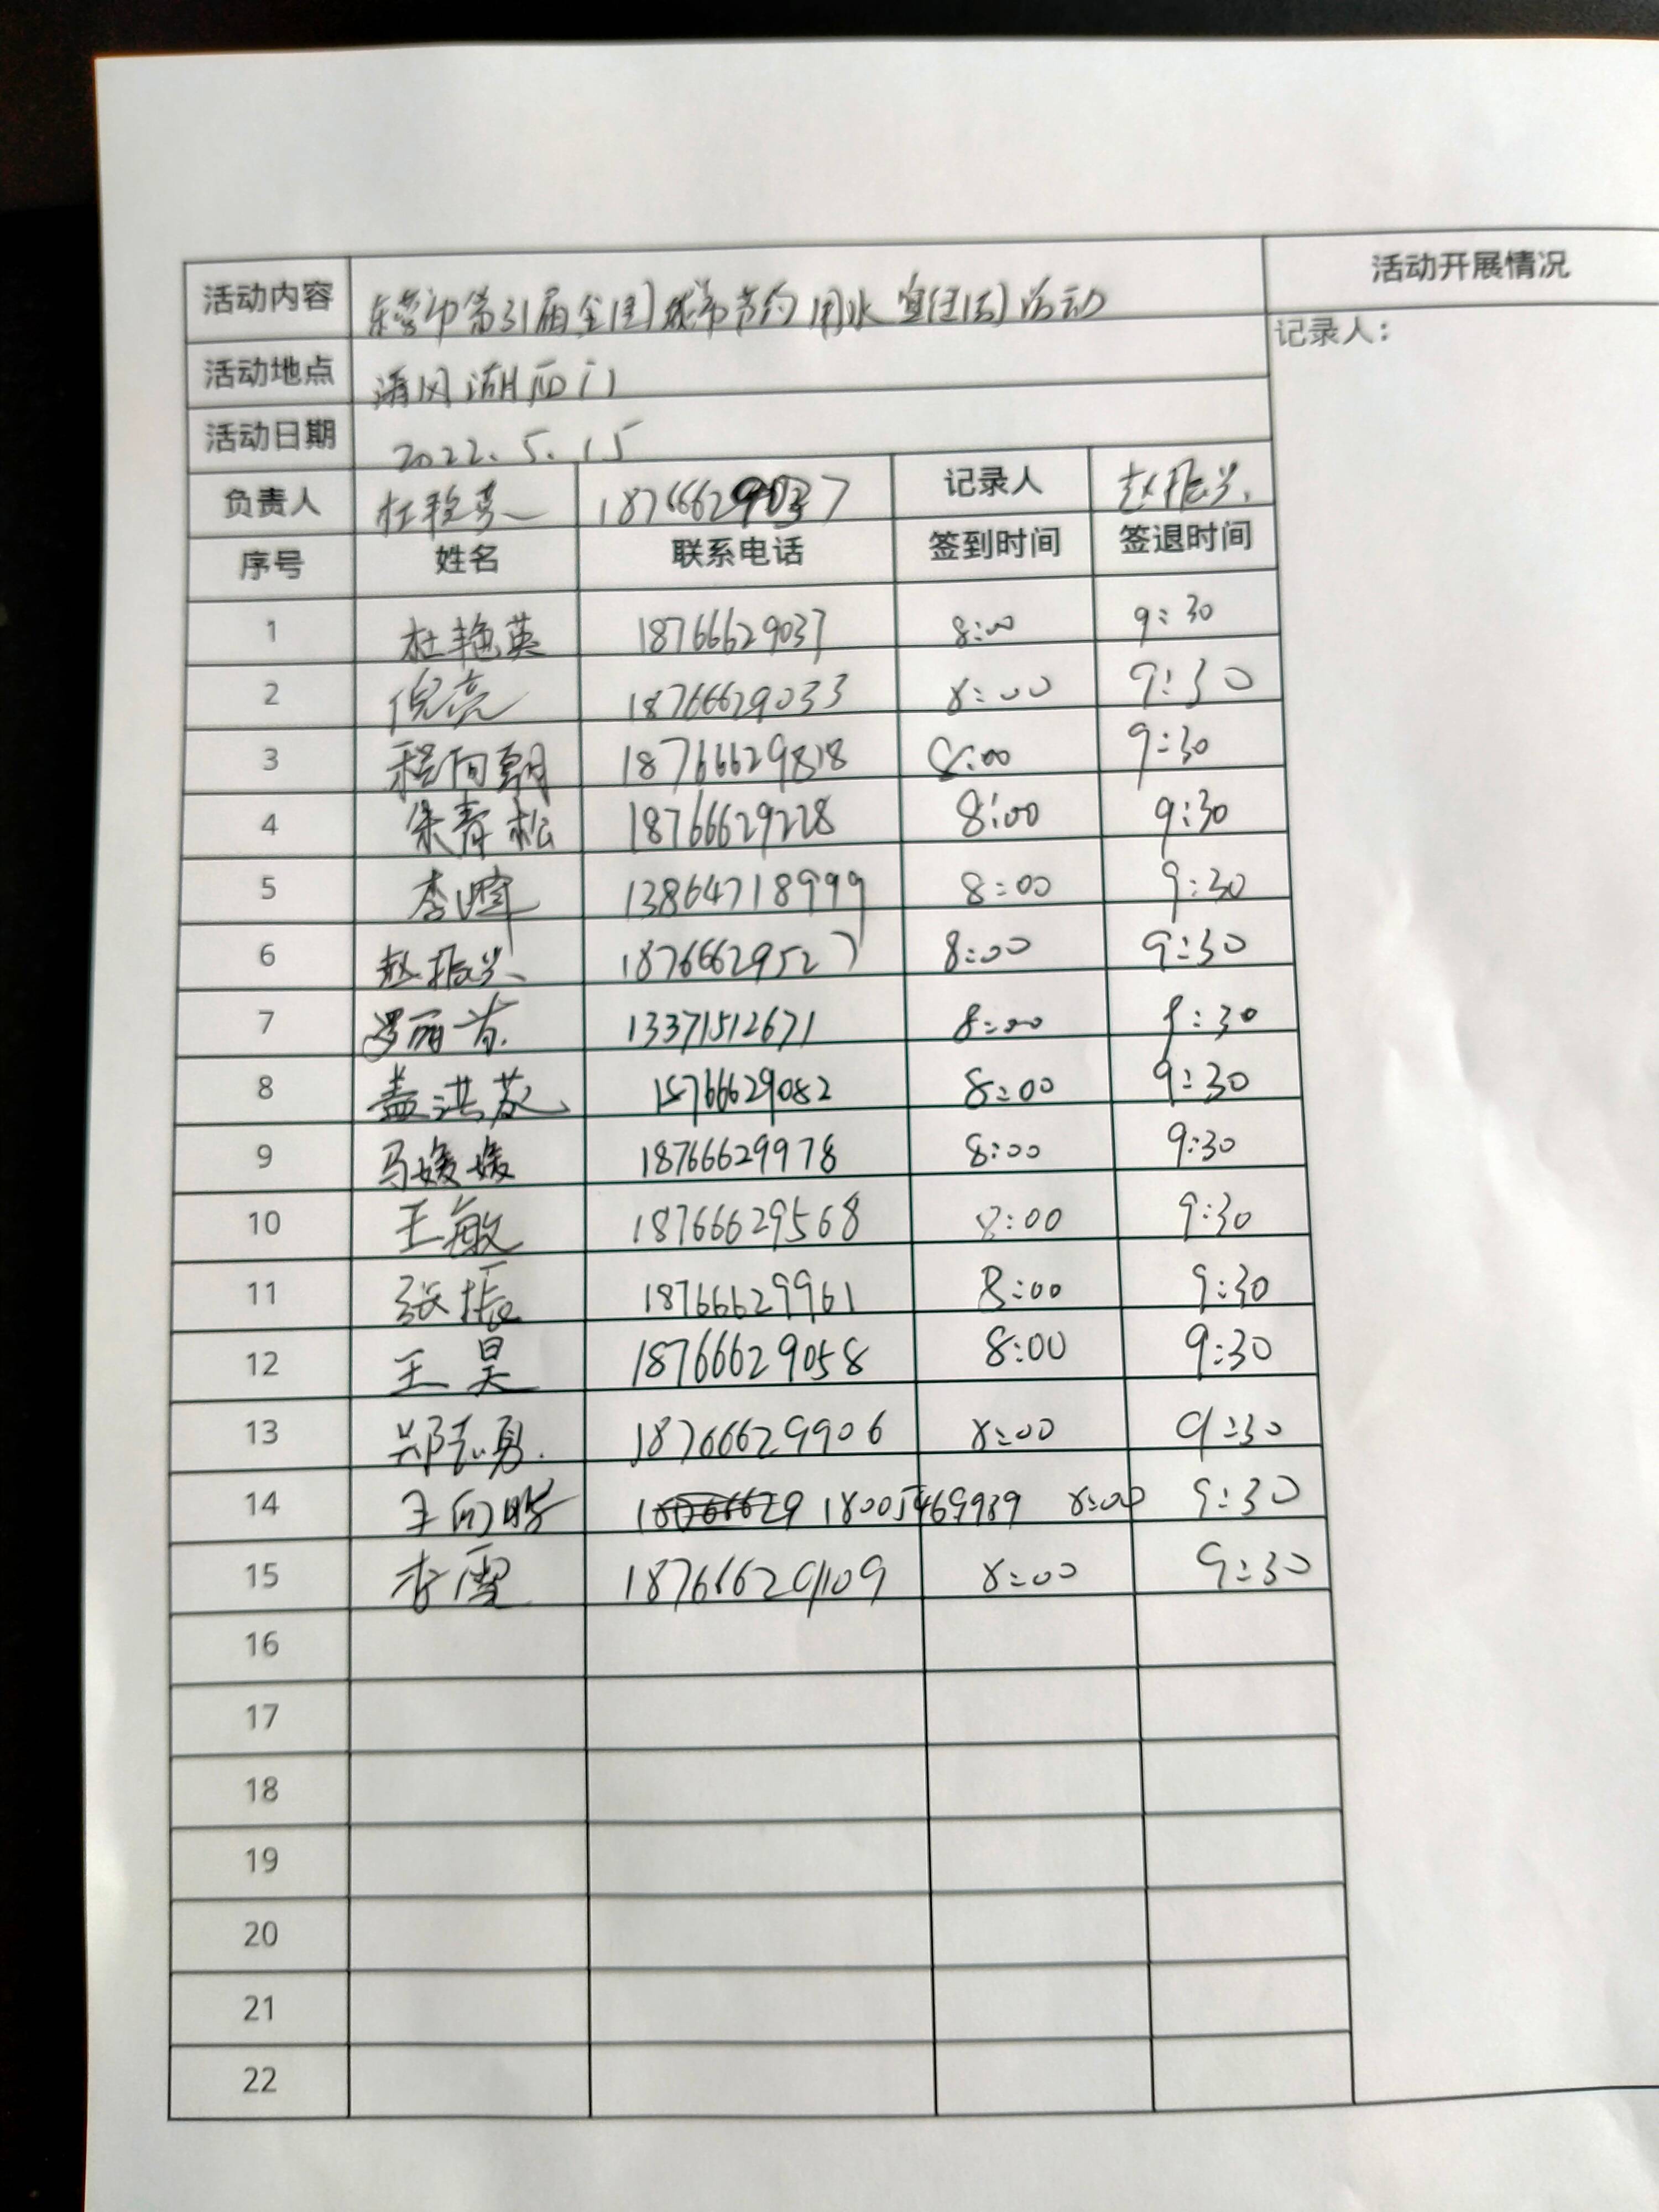 活动内容 东营市第31届全国城市节约用水宣传周活动 活动开展情况
活动地点 清风湖西门 记录人：
活动日期 2022.5.15
负责人 杜艳英 18766629037 记录人 赵振兴
序号 姓名 联系电话 签到时间 签退时间
1 杜艳英 18766629037 8:00 9:30
2 倪亮 18766629033 8:00 9:30
3 程向朝 18766629818 8:00 9:30
4 朱青松 18766629228 8:00 9:30
5 李晖 13864718999 8:00 9:30
6 赵振兴 18766629527 8:00 9:30
7 13371512671 8:00 9:30
8 盖洪 18766629082 8:00 9:30
9 马媛媛 18766629978 8:00 9:30
10 王敏 18766629568 8:00 9:30
11 张振 18766629961 8:00 9:30
12 王昊 18766629058 8:00 9:30
13 郑志勇 18766629906 8:00 9:30
14 18005469939 8:00 9:30
15 李雪 18766629109 8:00 9:30
16
17
18
19
20
21
22